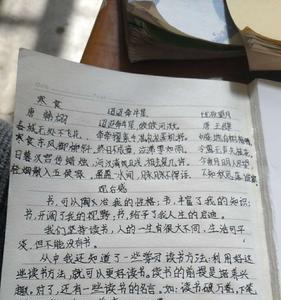 寒食 迢迢牵牛星 十五夜望月
唐 韩翃 迢迢牵牛星，皎皎河汉女。 唐 王建
春城无处不飞花，纤纤擢素手，札札弄机杼。中庭地白树栖鸦，
寒食东风御柳斜。终日不成章，泣涕零如雨。冷露无声湿桂花。
日暮汉宫传蜡烛，河汉清且浅，相去复几许。今夜月明人尽望，
轻烟散入五侯家。盈盈一水间，脉脉不得语。不知秋思落谁家。
观后感
书，可以陶冶我的性格；书，丰富了我的知识；
书，开阔了我的视野；书，给予了我人生的启迪。
我们坚持读书，人的一生有很大不同，生活可平
淡，但不能没有书。
从中我还知道了一些学习读书方法：利用好这
些读书方法，就可以更好读书。读书的前提是培养兴
趣。对了，还有一些读书的名言。如：读书破万卷，下笔